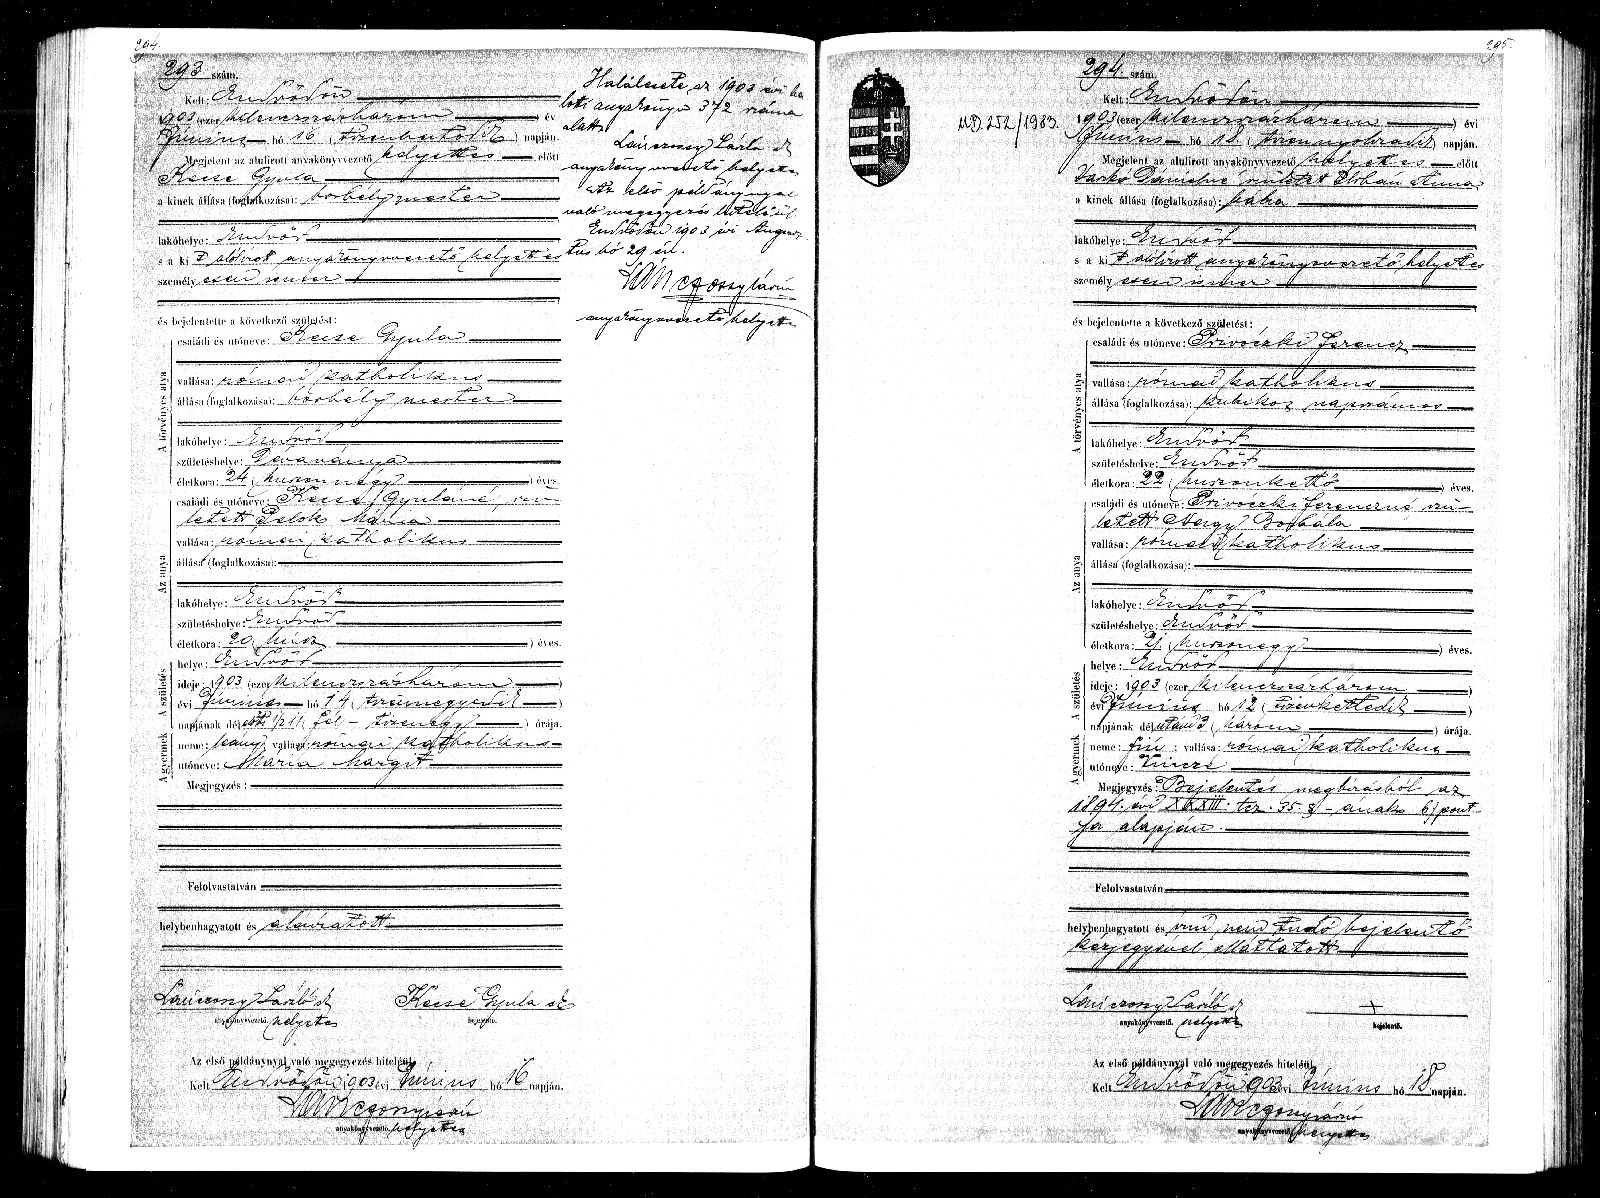 294.
293 szám.
Kelt: Endrődön
1903 (ezer kilenczszázhárom) év
Június hó 16 (tizenhatodik) napján.
Megjelent az alulirott anyakönyvvezető helyettes előtt
Kecse Gyula
a kinek állása (foglalkozása): borbély mester
lakóhelye: Endrőd
s a ki t alólirott anyakönyvvezető helyettes
személyesen ismer
és bejelentette a következő születést:
A törvényes atya
családi és utóneve: Kecse Gyula
vallása: római katholikus
állása (foglalkozása): borbély mester
lakóhelye: Endrőd
születéshelye: Dévaványa
életkora: 24 (huszonnégy) éves.
Az anya
családi és utóneve: Kecse Gyuláné, szü-
letett Mária
vallása: római katholikus
állása (foglalkozása):
lakóhelye: Endrőd
születéshelye: Endrőd
életkora: 20 (húsz) éves.
A gyermek A születés
helye: Endrőd
ideje: 1903 (ezer kilenczszázhárom)
évi Június hó 14 (tizennegyedik)
napjának délelőtti 1/2 11 (fél-tizenegy) órája.
neme: leány; vallása: római katholikus
utóneve: Mária Margit
Megjegyzés:
Felolvastatván
helybenhagyatott és aláiratott
Lánczossy László sk Kecse Gyula sk
anyakönyvvezető helyettes bejelentő.
Az első példánynyal való megegyezés hiteléül
Kelt Endrődön 1903 évi Június hó 16 napján.
anyakönyvvezető helyettes
Halálesete az 1903 évi ha
loti anyakönyv 372 száma
alatt
Lánczossy László sk
anyakönyvvezető helyettes
Az első példánynyal
való megegyezés hiteléül
Endrődön 1903 évi Augusz
tus hó 29 én.
Lánczossy László
anyakönyvvezető helyettes
MD.252/1983.
295.
294. szám.
Kelt: Endrődön
1903 (ezer kilenczszázhárom) évi
Június hó 18. (tizennyolczadik) napján.
Megjelent az alulirott anyakönyvvezető helyettes előtt
Varkó Dánielné született Anna
a kinek állása (foglalkozása): bába
lakóhelye: Endrőd
s a ki t alólirott anyakönyvvezető helyettes
személyesen ismer
és bejelentette a következő születést:
A törvényes atya
családi és utóneve: Privóczki Ferencz
vallása: római katholikus
állása (foglalkozása): kubikos napszámos
lakóhelye: Endrőd
születéshelye: Endrőd
életkora: 22 (huszonkettő) éves.
Az anya
családi és utóneve: Privóczki Ferenczné, szü-
letett Nagy Borbála
vallása: római katholikus
állása (foglalkozása):
lakóhelye: Endrőd
születéshelye: Endrőd
életkora: 21 (huszonegy) éves.
A gyermek A születés
helye: Endrőd
ideje: 1903 (ezer kilenczszázhárom)
évi Június hó 12 (tizenkettedik)
napjának délutáni 3 (három) órája.
neme: fiú; vallása: római katholikus
utóneve: Vincze
Megjegyzés: Bejelentés megbízásból az
1894. évi XXXIII. tcz. 35. §-ának b) pont-
ja alapján.
Felolvastatván
helybenhagyatott és írni nem tudó bejelentő
kézjegyével elláttatott
Lánczossy László sk +
anyakönyvvezető helyettes bejelentő.
Az első példánynyal való megegyezés hiteléül
Kelt Endrődön 1903 évi Június hó 18 napján.
anyakönyvvezető helyettes